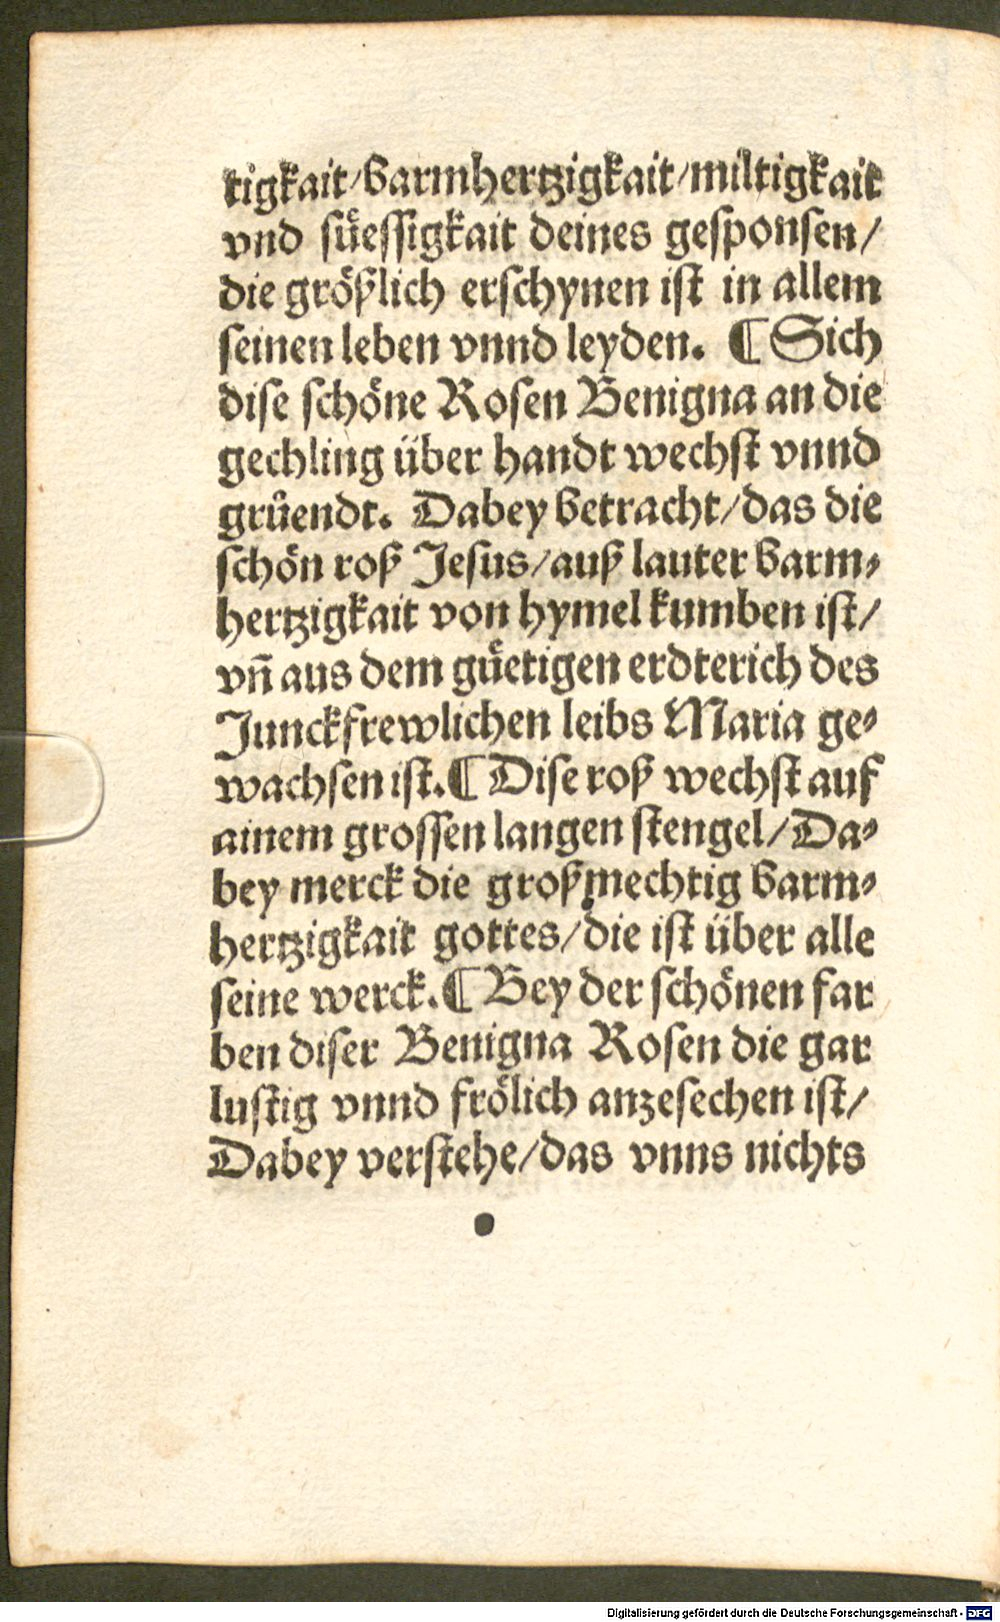 tigkait/barmhertzigkait/miltigkait
vnd süessigkait deines gesponsen/
die größlich erschynen ist in allem
seinen leben vnnd leyden. ¶ Sich
dise schöne Rosen Benigna an die
gechling über handt wechst vnnd
grůendt. Dabey betracht/das die
schön roß Jesus/auß lauter barm⸗
hertzigkait von hymel kumben ist/
vñ aus dem güetigen erdterich des
Junckfrewlichen leibs Maria ge⸗
wachsen ist. ¶ Dise roß wechst auf
ainem grossen langen stengel/Da⸗
bey merck die großmechtig barm⸗
hertzigkait gottes/die ist über alle
seine werck. ¶ Bey der schönen far
ben diser Benigna Rosen die gar
lustig vnnd frölich anzesechen ist/
Dabey verstehe/das vnns nichts
Digitalisierung gefördert durch die Deutsche Forschungsgemeinschaft - DFG